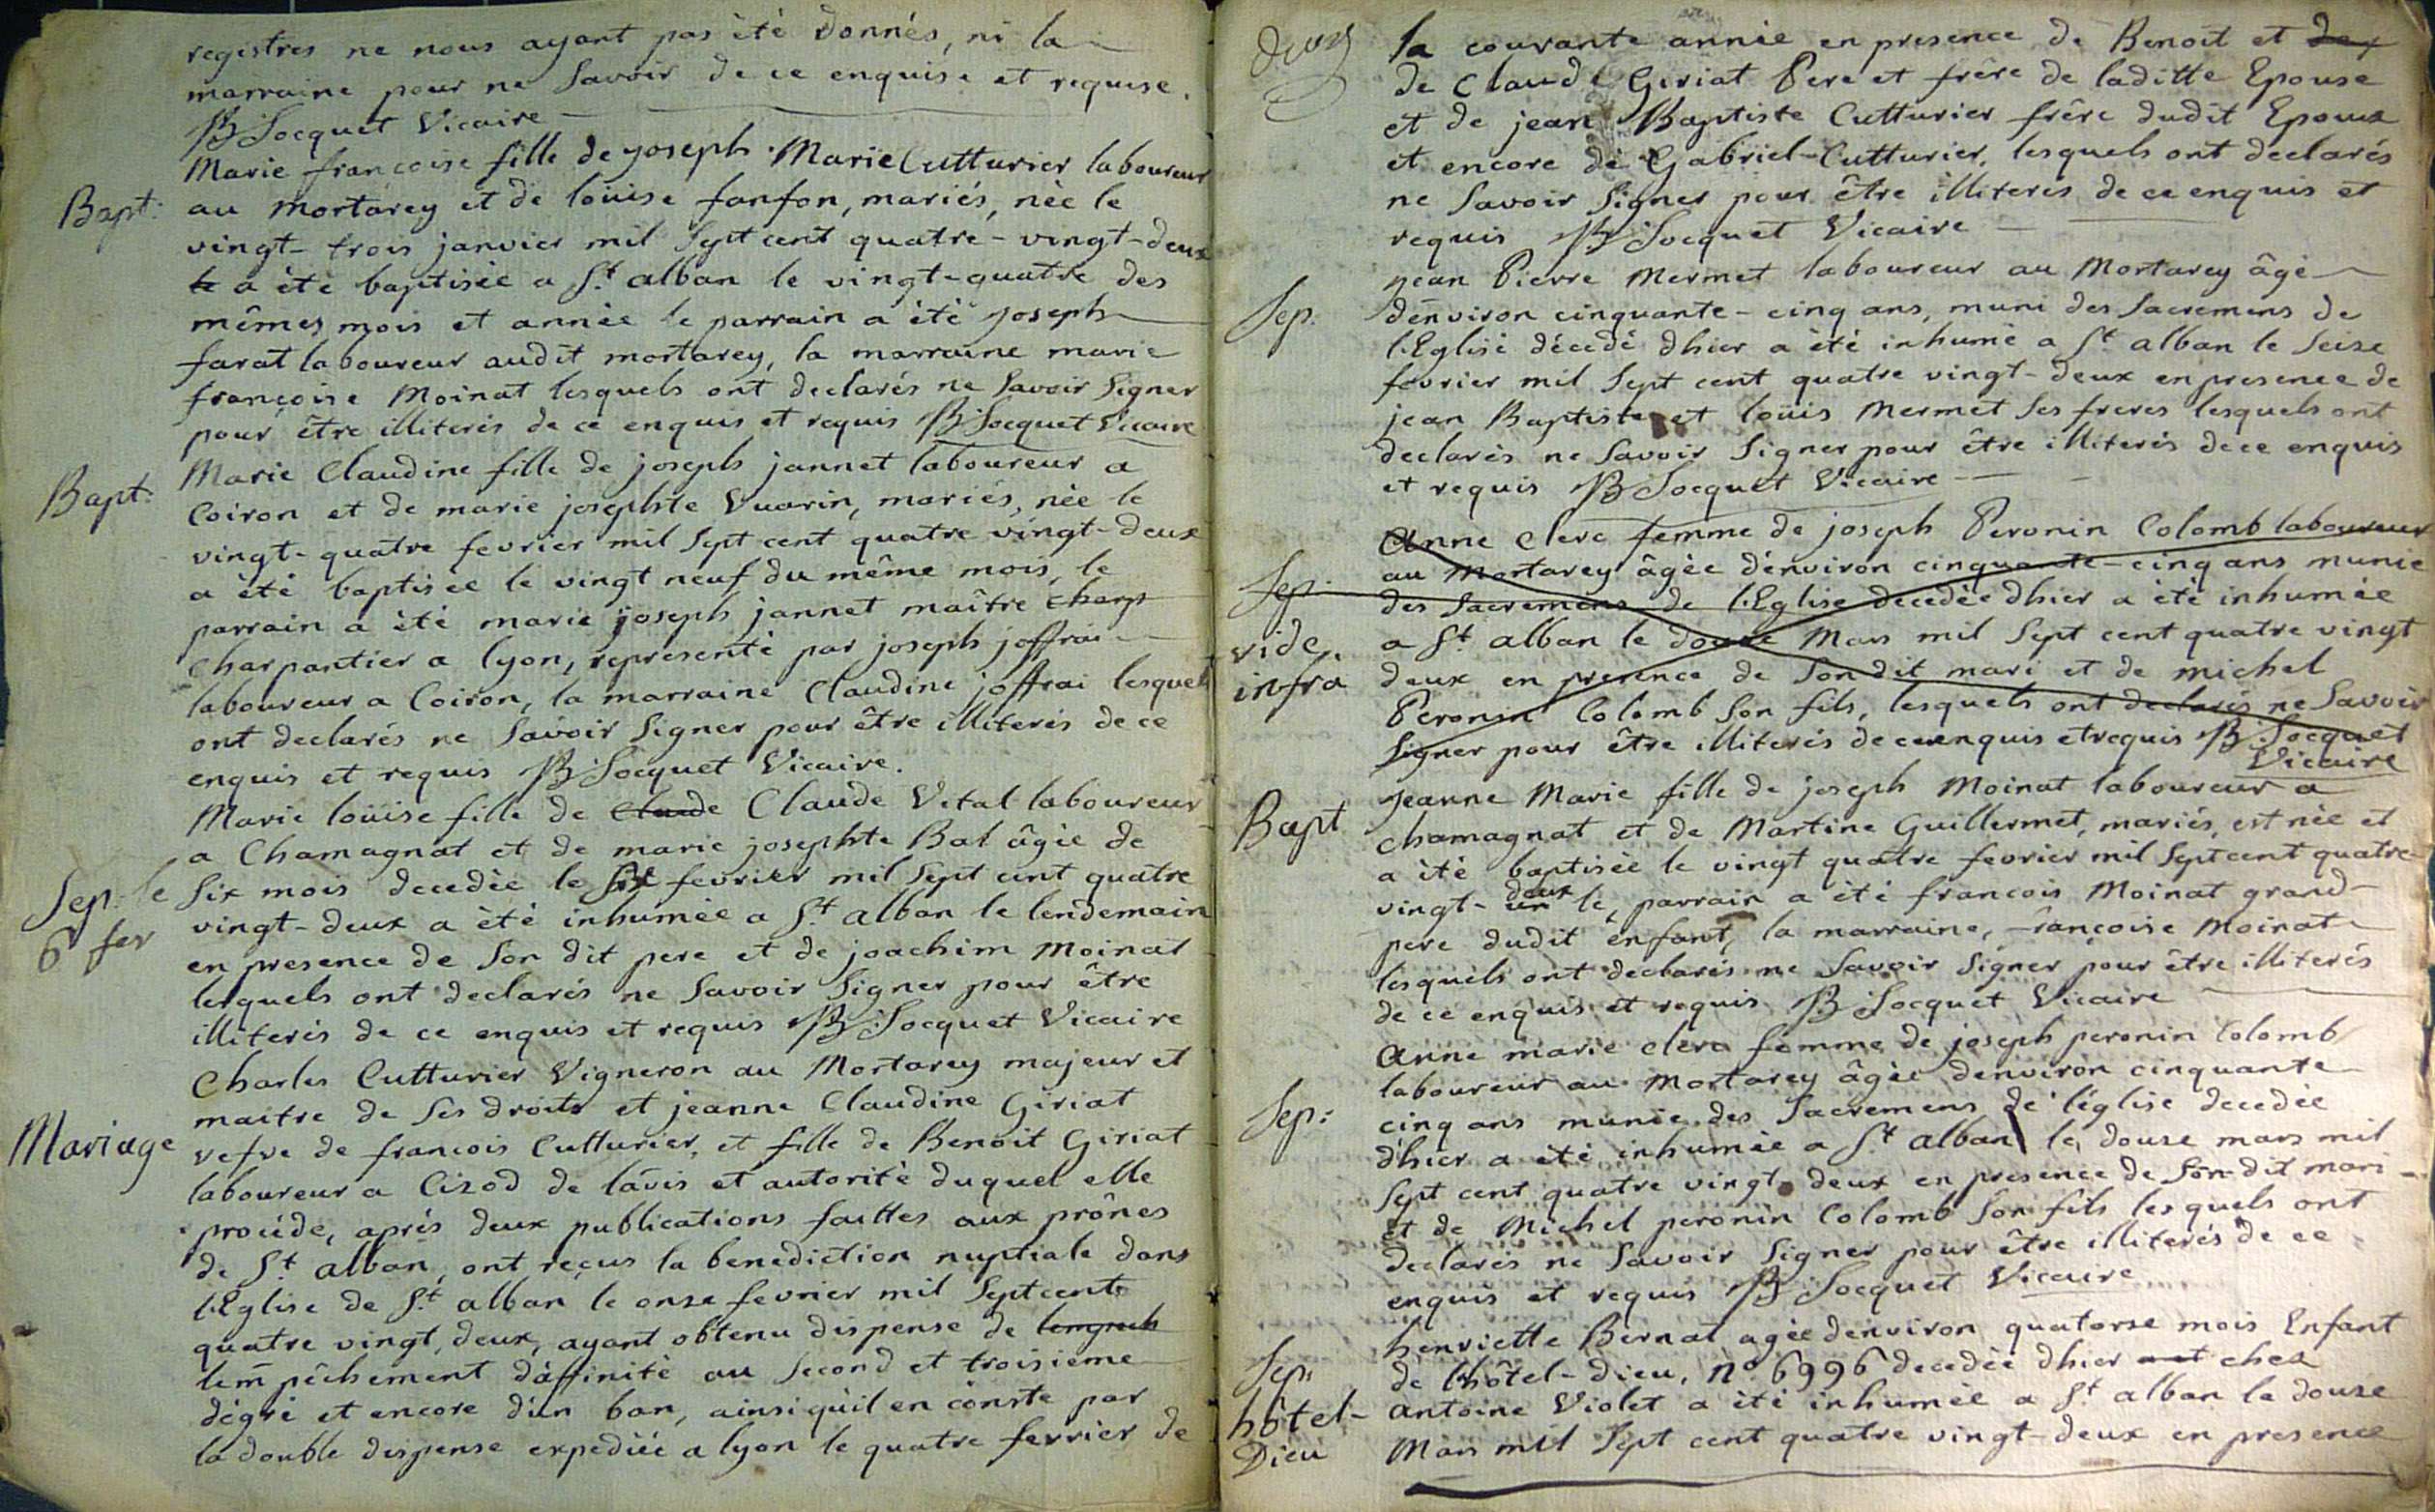 registres ne nous ayant pas été donnés, ni la
marraine pour ne savoir de ce enquise et requise.
JB Socquet Vicaire
Marie françoise fille de joseph Marie Cutturier laboureur
Bapt: au mortarey et de loüise fanfon, mariés, née le
vingt-trois janvier mil sept cent quatre-vingt-deux
le a été baptisée a St. alban le vingt-quatre des
mêmes mois et année le parrain a été joseph
farat laboureur audit mortarey, la marraine marie
françoise Moinat lesquels ont declarés ne savoir signer
pour être illiterés de ce enquis et requis JB Socquet Vicaire
Bapt: Marie Claudine fille de joseph jannet laboureur a
Coiron et de marie josephte Vuarin, mariés, née le
vingt-quatre fevrier mil sept cent quatre vingt-deux
a été baptisée le vingt neuf du même mois, le
parrain a été marie joseph jannet maître charp
charpantier a lyon, representé par joseph joffrai
laboureur a Coiron, la marraine Claudine joffrai lesquels
ont declarés ne savoir signer pour être illiterés de ce
enquis et requis JB Socquet Vicaire.
Marie loüise fille de Claude Claude Vital laboureur
a Chamagnat et de marie josephte Bal âgée de
Sep: le six mois decedée le six fevrier mil sept cent quatre
6 fer vingt-deux a été inhumée a St alban le lendemain
en presence de son dit pere et de joachim Moinat
lesquels ont declarés ne savoir signer pour être
illiterés de ce enquis et requis JB Socquet Vicaire
Charles Cutturier Vigneron au Mortarey majeur et
maitre de ses droits et jeanne Claudine Giriat
Mariage vefve de francois Cutturier, et fille de Benoit Giriat
laboureur a Cizod de lavis et autorité duquel elle
procéde, aprés deux publications faittes aux prônes
de St. alban, ont reçus la benediction nuptiale dans
l'Eglise de St. alban le onze fevrier mil septcent
quatre vingt, deux, ayant obtenu dispense de
lempêchement d'affinité au second et troisieme
dégré et encore d'un ban, ainsi qu'il en conste par
la double dispense expediée a lyon le quatre fevrier de
deux la courante année en presence de Benoit et de
de Claude Giriat Pere et frère de laditte Epouse
et de jean Baptiste Cutturier frère dudit Epoux
et encore de Gabriel Cutturier, lesquels ont declarés
ne savoir signer pour être illiterés de ce enquis et
requis JB Socquet Vicaire
jean Pierre Mermet laboureur au Mortarey âgé
Sep: d'environ cinquante-cinq ans, muni des sacremens de
l'Eglise décedé dhier a été inhumé a St alban le seize
fevrier mil sept cent quatre vingt-deux en presence de
jean Baptiste et loüis Mermet ses freres lesquels ont
declarés ne savoir signer pour être illiterés de ce enquis
et requis JB Socquet Vicaire
Anne clerc femme de joseph Peronin Colomb laboureur
au Mortarey âgée d'environ cinquante-cinq ans munie
Sep: des sacremens de l'Eglise decedée dhier a été inhumée
vide a St alban le douze Mars mil sept cent quatre vingt
infra deux en presence de son dit mari et de michel
Peronin Colomb son fils, lesquels ont declarés ne savoir
signer pour être illiterés de ce enquis et requis JB Socquet
Vicaire
Jeanne Marie fille de joseph Moinat laboureur a
Bapt chamagnat et de Martine Guillermet, mariés, est née et
a été baptisée le vingt quatre fevrier mil sept cent quatre
vingt-un deux le, parrain a été francois Moinat grand-
pere dudit enfant, la marraine, françoise Moinat
lesquels ont declarés ne savoir signer pour être illiterés
de ce enquis et requis JB Socquet Vicaire
Anne marie clerc femme de joseph peronin Colomb
laboureur au Mortarey âgée denviron cinquante
Sep: cinq ans munie des sacremens de l'église decedée
d'hier a été inhumée a St alban le, douze mars mil
sept cent quatre vingt deux en presence de son dit mari
et de Michel peronin Colomb son fils lesquels ont
declarés ne savoir signer pour être illiterés de ce
enquis et requis JB Socquet Vicaire
henriette Bernat agée denviron quatorze mois Enfant
Sep: de l'hôtel-Dieu, No 6996 decedée dhier chez
hôtel- antoine Violet a été inhumée a St alban le douze
Dieu Mars mil sept cent quatre vingt-deux en presence